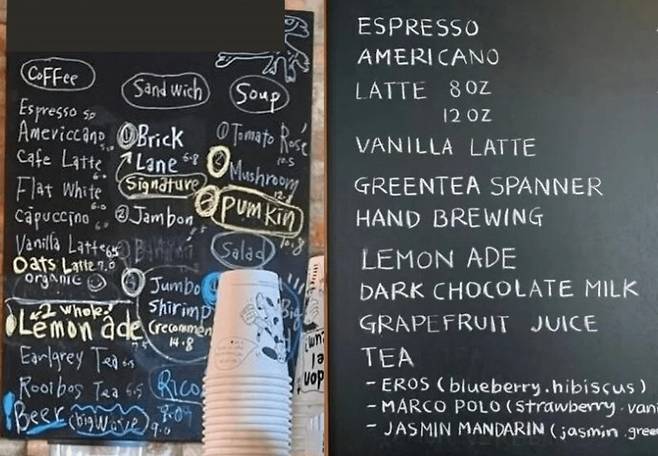 Coffee
Espresso 5.0
Americcano 5.0
Cafe Latte 6.0
Flat White 6.0
Cappuccino 6.0
Vanilla Latte 6.5
Oats Latte 7.0
organic
2 whole
Lemon ade
Earlgrey Tea 6.5
Rooibos Tea 6.5
Beer (big wave) 9.0
Sandwich
① Brick
Lane 6.8
Signature
② Jambon
Jumbo
Shirimp
(recommen
14.8
Rico
Soup
① Tomato Rosé
10.5
② Mushroom
③ Pumkin
10.8
Salad
Big
ESPRESSO
AMERICANO
LATTE 8 OZ
12 OZ
VANILLA LATTE
GREENTEA SPANNER
HAND BREWING
LEMON ADE
DARK CHOCOLATE MILK
GRAPEFRUIT JUICE
TEA
- EROS (blueberry.hibiscus)
- MARCO POLO (strawberry.vani
- JASMIN MANDARIN (jasmin.gree